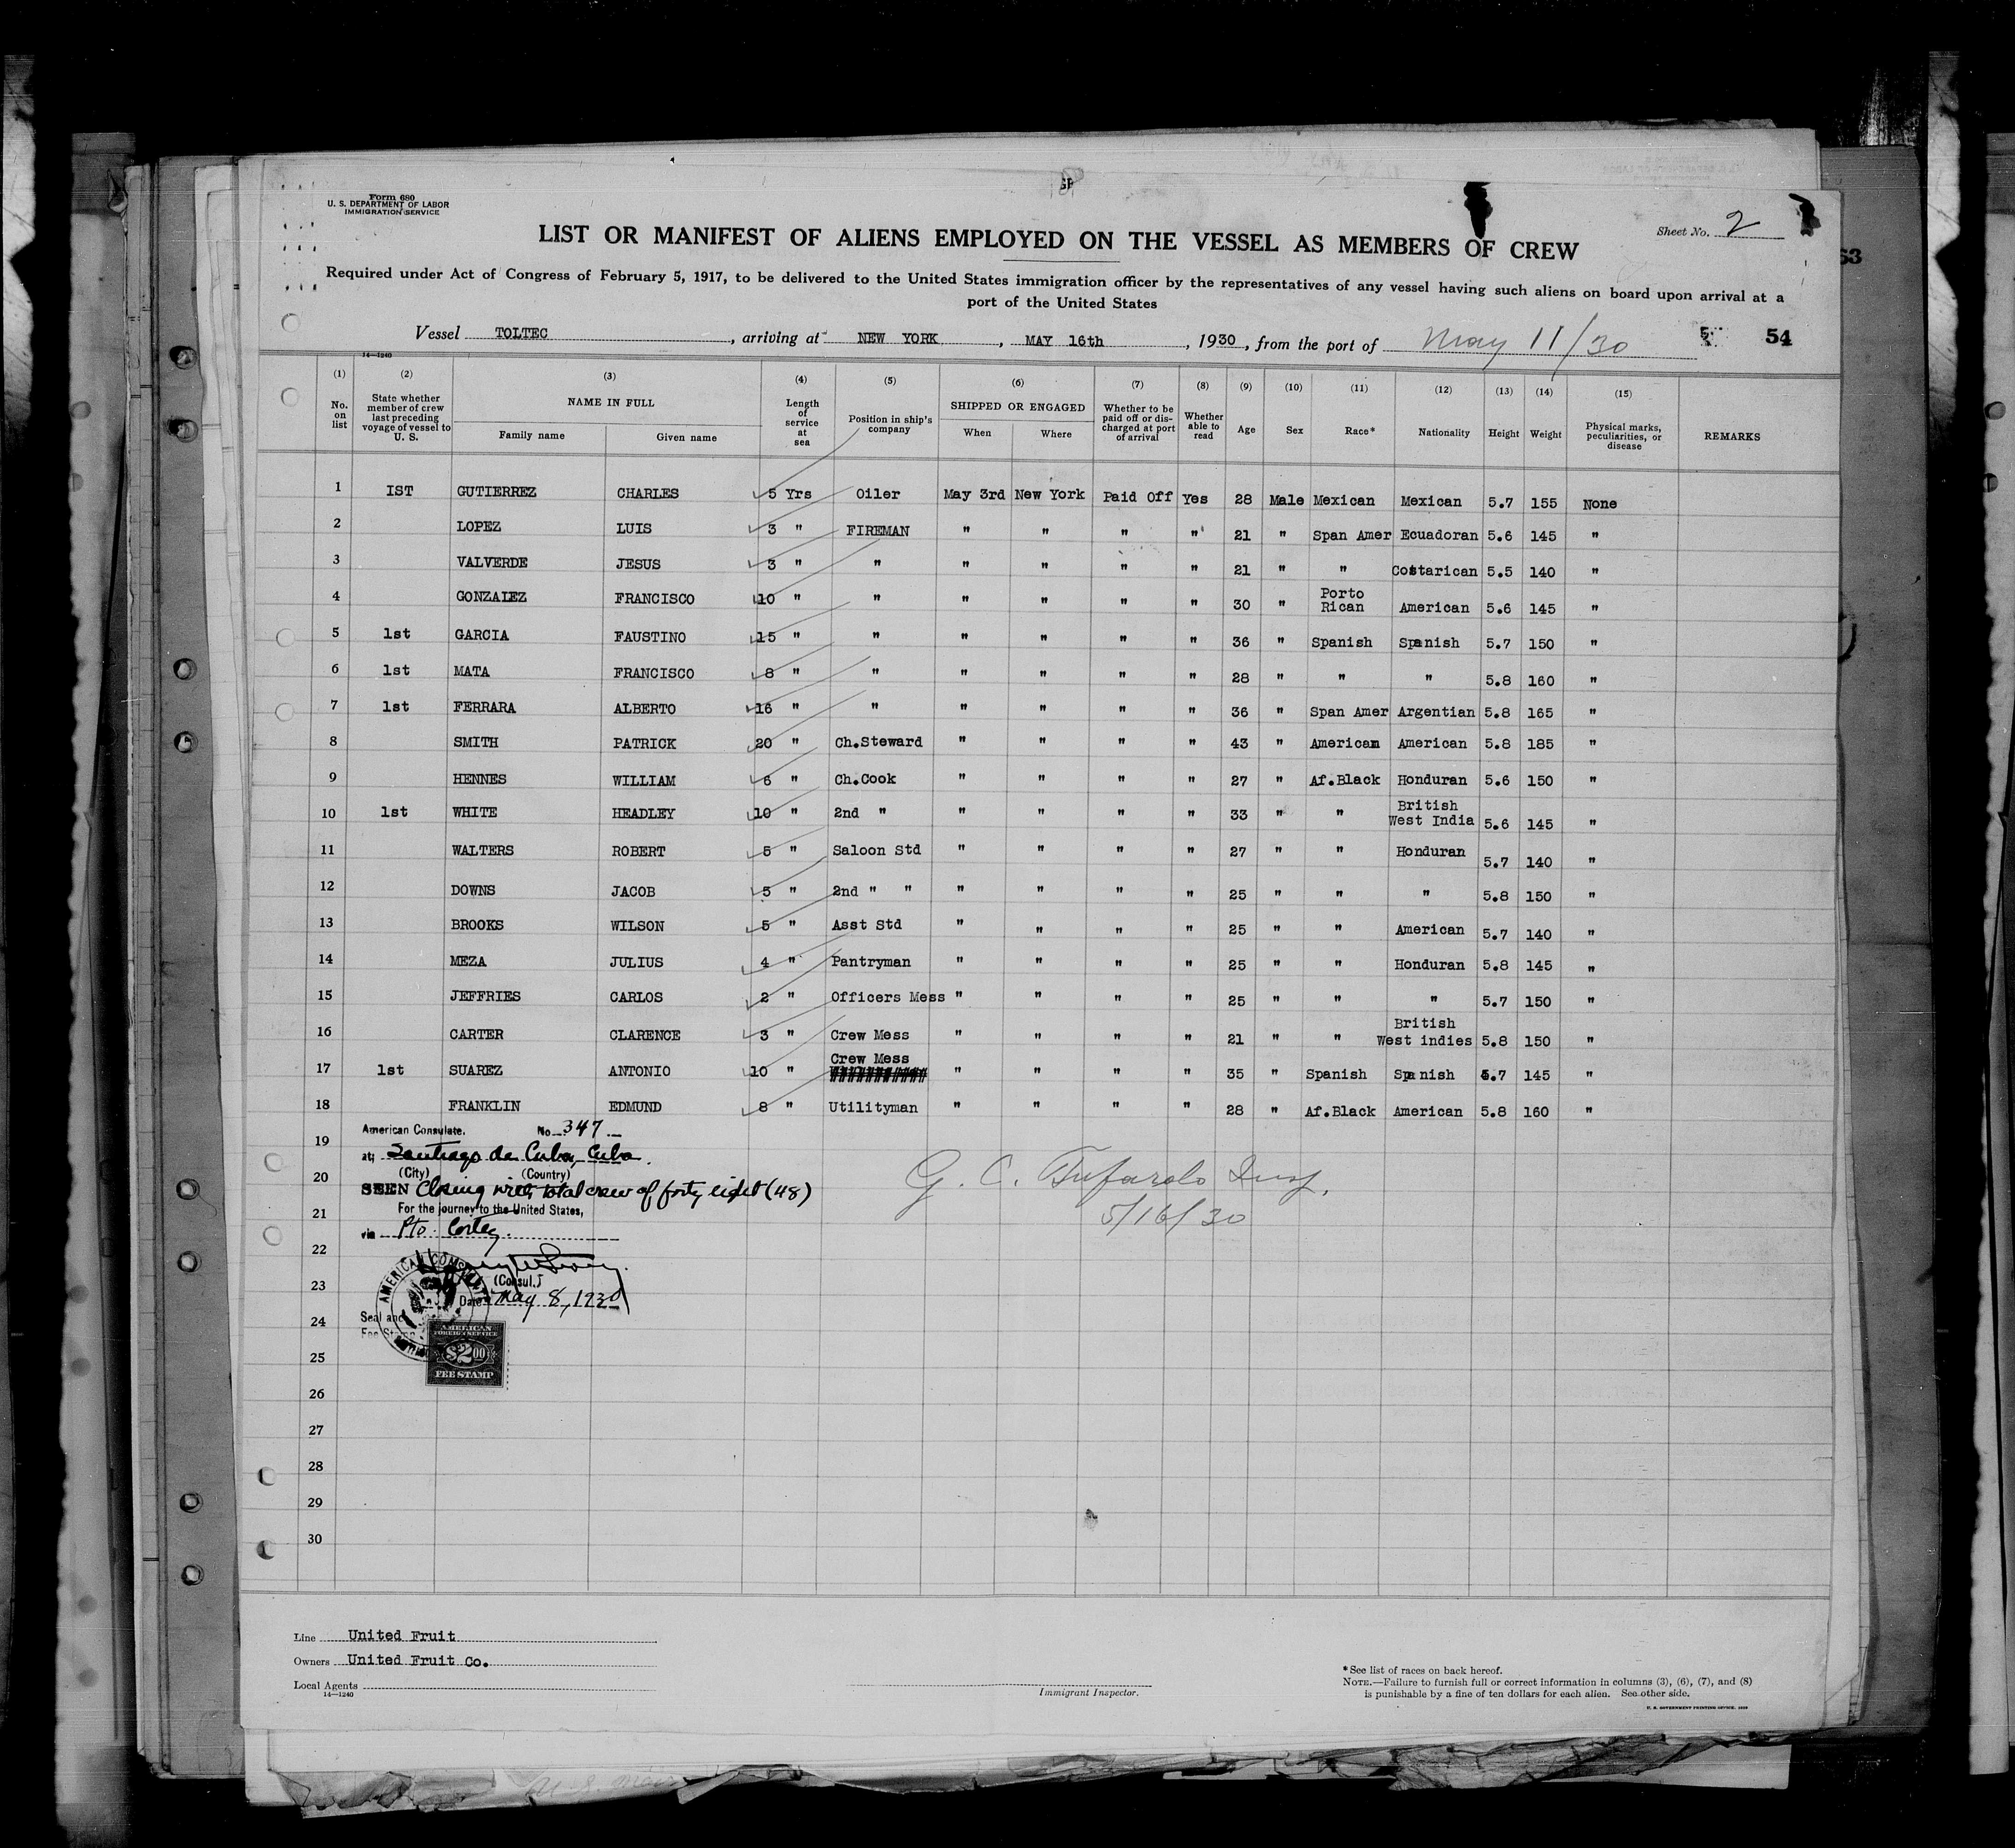 Form 680
U. S. DEPARTMENT OF LABOR
IMMIGRATION SERVICE
Sheet No. 2
LIST OR MANIFEST OF ALIENS EMPLOYED ON THE VESSEL AS MEMBERS OF CREW
Required under Act of Congress of February 5, 1917, to be delivered to the United States immigration officer by the representatives of any vessel having such aliens on board upon arrival at a
port of the United States
Vessel TOLTEC, arriving at NEW YORK, MAY 16th, 1930, from the port of May 11/30 54
14—1240
(1) (2) (3) (4) (5) (6) (7) (8) (9) (10) (11) (12) (13) (14) (15)
No. on list State whether member of crew last preceding voyage of vessel to U. S. NAME IN FULL Family name Given name Length of service at sea Position in ship's company SHIPPED OR ENGAGED When Where Whether to be paid off or discharged at port of arrival Whether able to read Age Sex Race* Nationality Height Weight Physical marks, peculiarities, or disease REMARKS
1 IST GUTIERREZ CHARLES 5 Yrs Oiler May 3rd New York Paid Off Yes 28 Male Mexican Mexican 5.7 155 None
2 LOPEZ LUIS 3 " FIREMAN " " " " 21 " Span Amer Ecuadoran 5.6 145 "
3 VALVERDE JESUS 3 " " " " " " 21 " " Costarican 5.5 140 "
4 GONZALEZ FRANCISCO 10 " " " " " " 30 " Porto Rican American 5.6 145 "
5 1st GARCIA FAUSTINO 15 " " " " " " 36 " Spanish Spanish 5.7 150 "
6 1st MATA FRANCISCO 8 " " " " " " 28 " " " 5.8 160 "
7 1st FERRARA ALBERTO 16 " " " " " " 36 " Span Amer Argentian 5.8 165 "
8 SMITH PATRICK 20 " Ch.Steward " " " " 43 " American American 5.8 185 "
9 HENNES WILLIAM 6 " Ch.Cook " " " " 27 " Af.Black Honduran 5.6 150 "
10 1st WHITE HEADLEY 10 " 2nd " " " " " 33 " " British West India 5.6 145 "
11 WALTERS ROBERT 5 " Saloon Std " " " " 27 " " Honduran 5.7 140 "
12 DOWNS JACOB 5 " 2nd " " " " " " 25 " " " 5.8 150 "
13 BROOKS WILSON 5 " Asst Std " " " " 25 " " American 5.7 140 "
14 MEZA JULIUS 4 " Pantryman " " " " 25 " " Honduran 5.8 145 "
15 JEFFRIES CARLOS 2 " Officers Mess " " " " 25 " " " 5.7 150 "
16 CARTER CLARENCE 3 " Crew Mess " " " " 21 " " British West indies 5.8 150 "
17 1st SUAREZ ANTONIO 10 " Crew Mess " " " " 35 " Spanish Spanish 5.7 145 "
18 FRANKLIN EDMUND 8 " Utilityman " " " " 28 " Af.Black American 5.8 160 "
American Consulate. No. 347
19
at Santiago de Cuba, Cuba.
(City) (Country)
20
SEEN Closing with total crew of forty eight (48)
For the journey to the United States,
21
via Pto. Cortez.
G. C. Tufarolo Insp.
5/16/30
22
23
(Consul.)
Date May 8, 1930
24
Seal and
Fee Stamp
AMERICAN CONSULATE
AMERICAN
FOREIGN SERVICE
$2.00
FEE STAMP
25
26
27
28
29
30
Line United Fruit
Owners United Fruit Co.
Local Agents
14—1240
Immigrant Inspector.
*See list of races on back hereof.
NOTE.—Failure to furnish full or correct information in columns (3), (6), (7), and (8)
is punishable by a fine of ten dollars for each alien. See other side.
U. S. GOVERNMENT PRINTING OFFICE